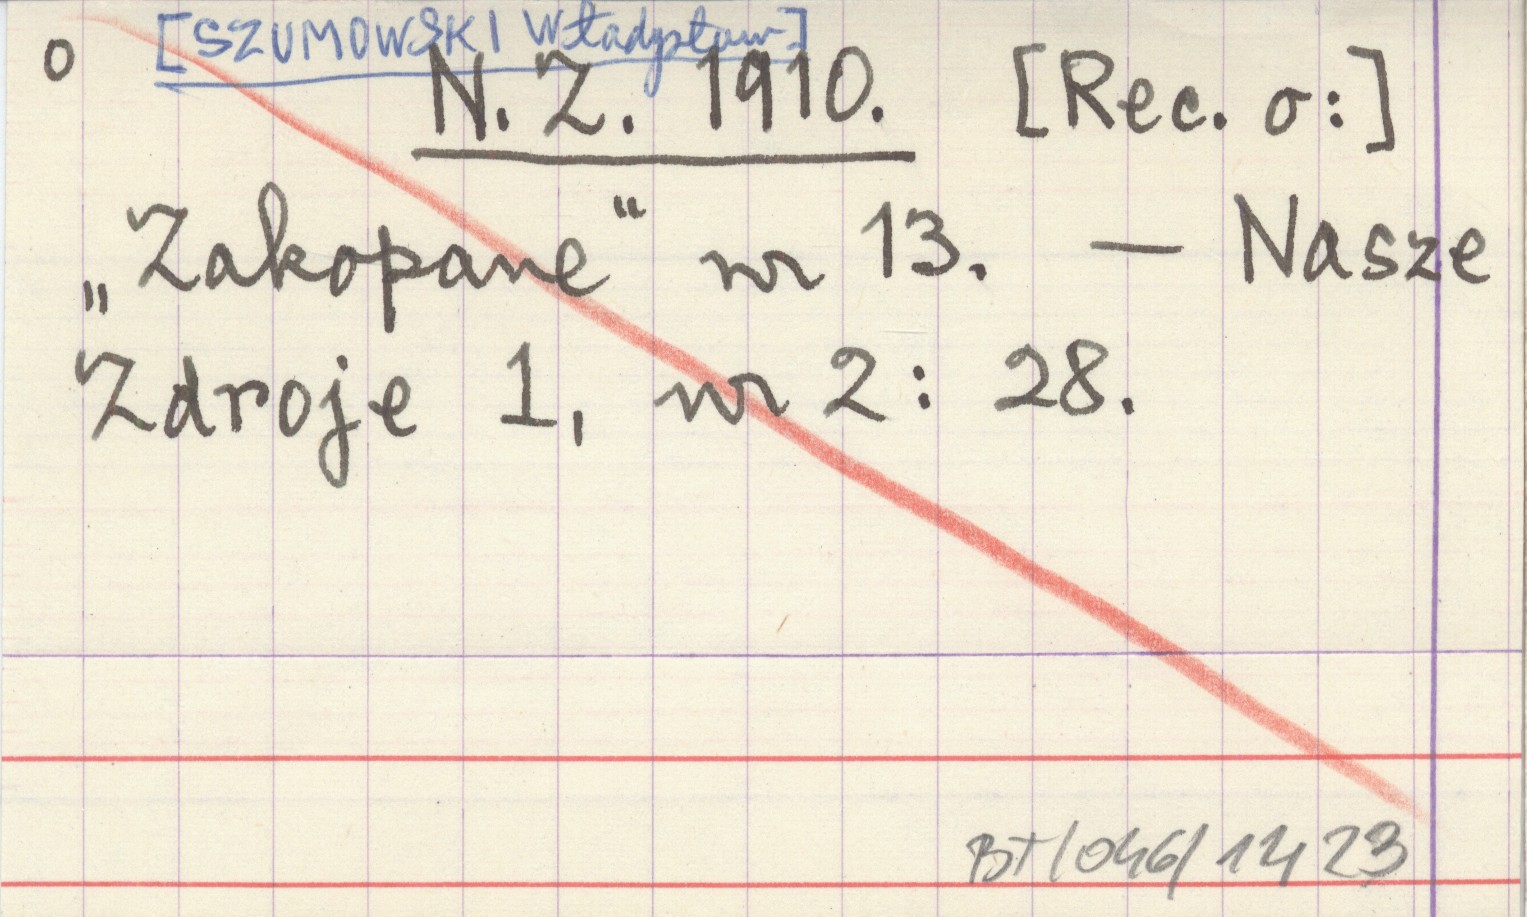 [SZUMOWSKI Władysław]
o N. Z. 1910. [Rec. o:]
„Zakopane“ nr 13. — Nasze
Zdroje 1, nr 2: 28.
BT/046/1423